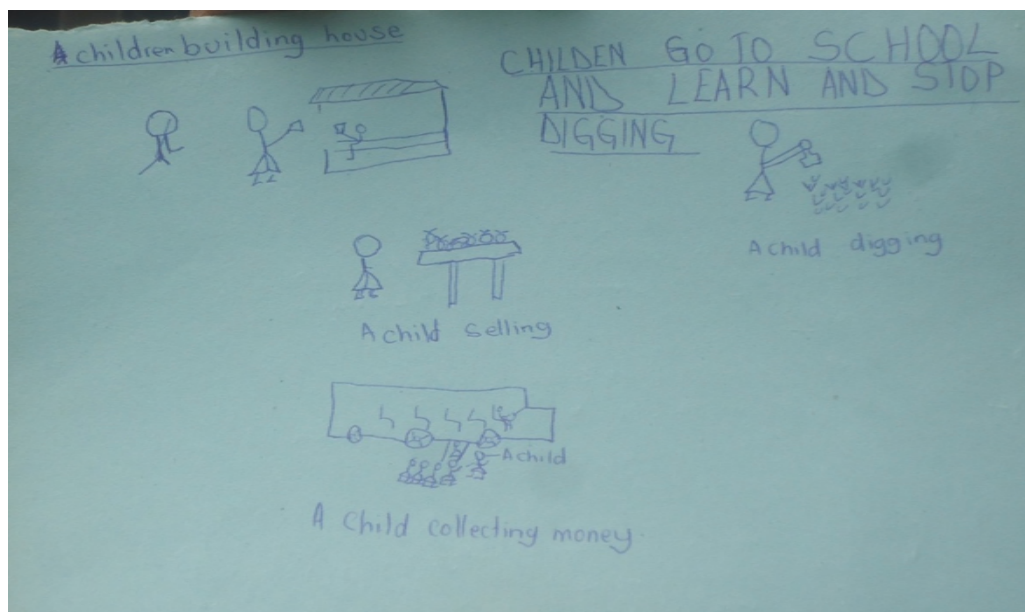 A children building house
CHILDEN GO TO SCHOOL
AND LEARN AND STOP
DIGGING
A child digging
A child selling
A child
A child collecting money.